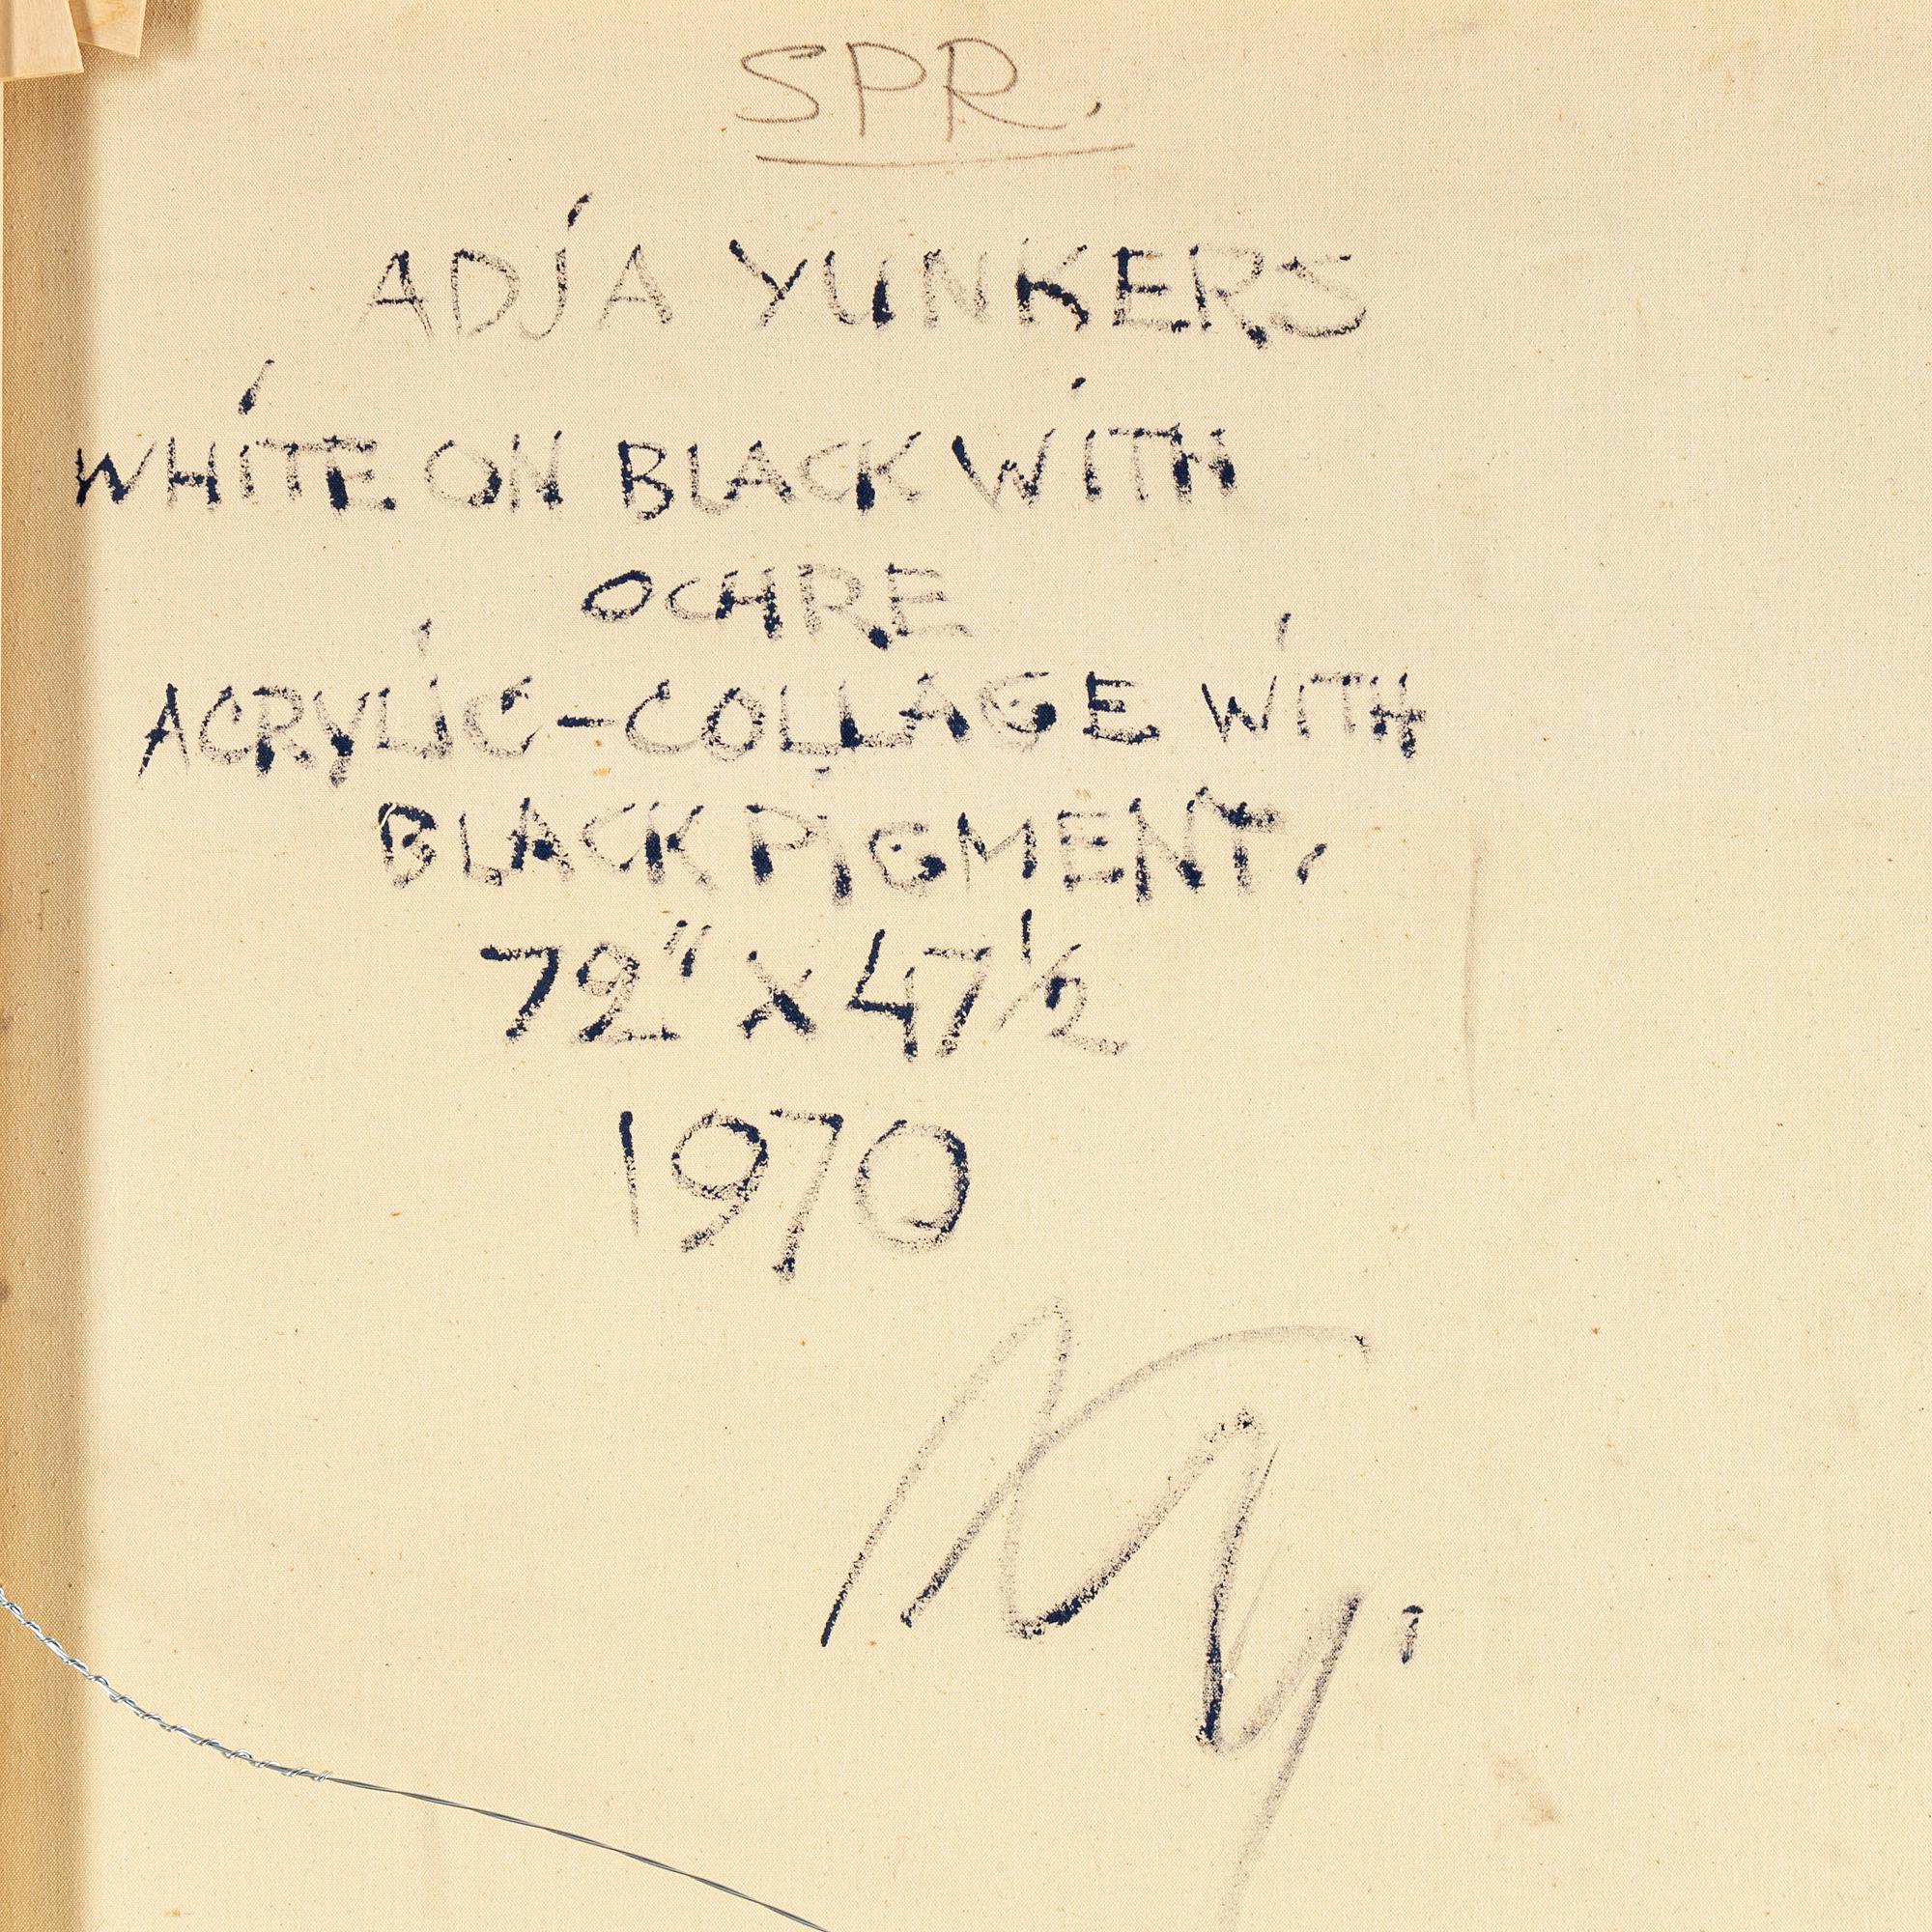 SPR.
ADJA YUNKERS
WHiTE ON BLACK WiTH
OCHRE
ACRYLiC-COLLAGE WiTH
BLACK PIGMENT.
72" X 47 1/2
1970